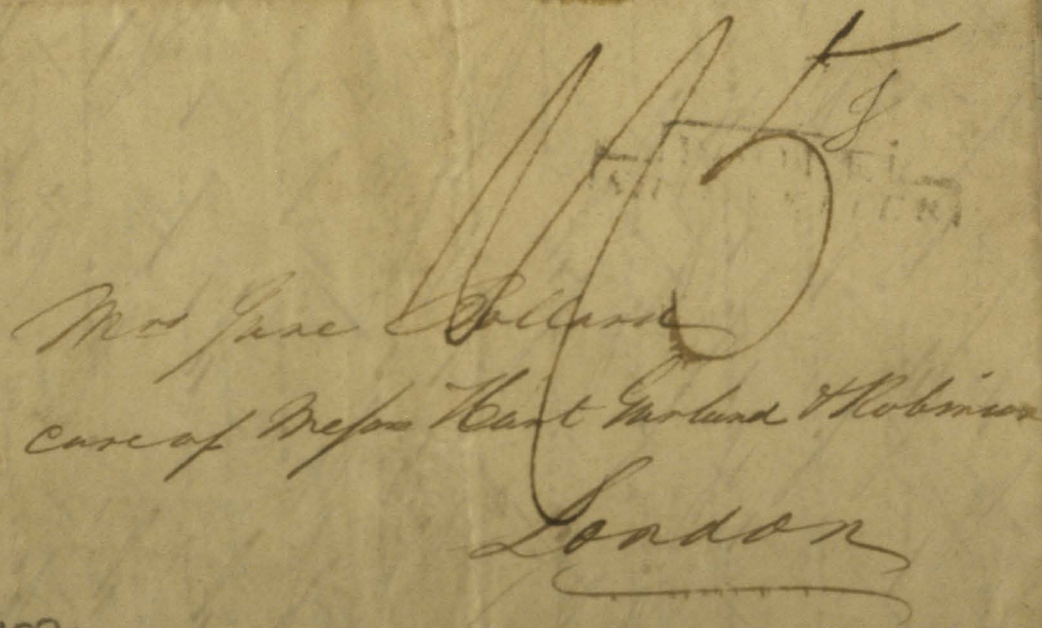 Mrs Jane Bolland
care of Messrs Hart Garland & Robinson
London